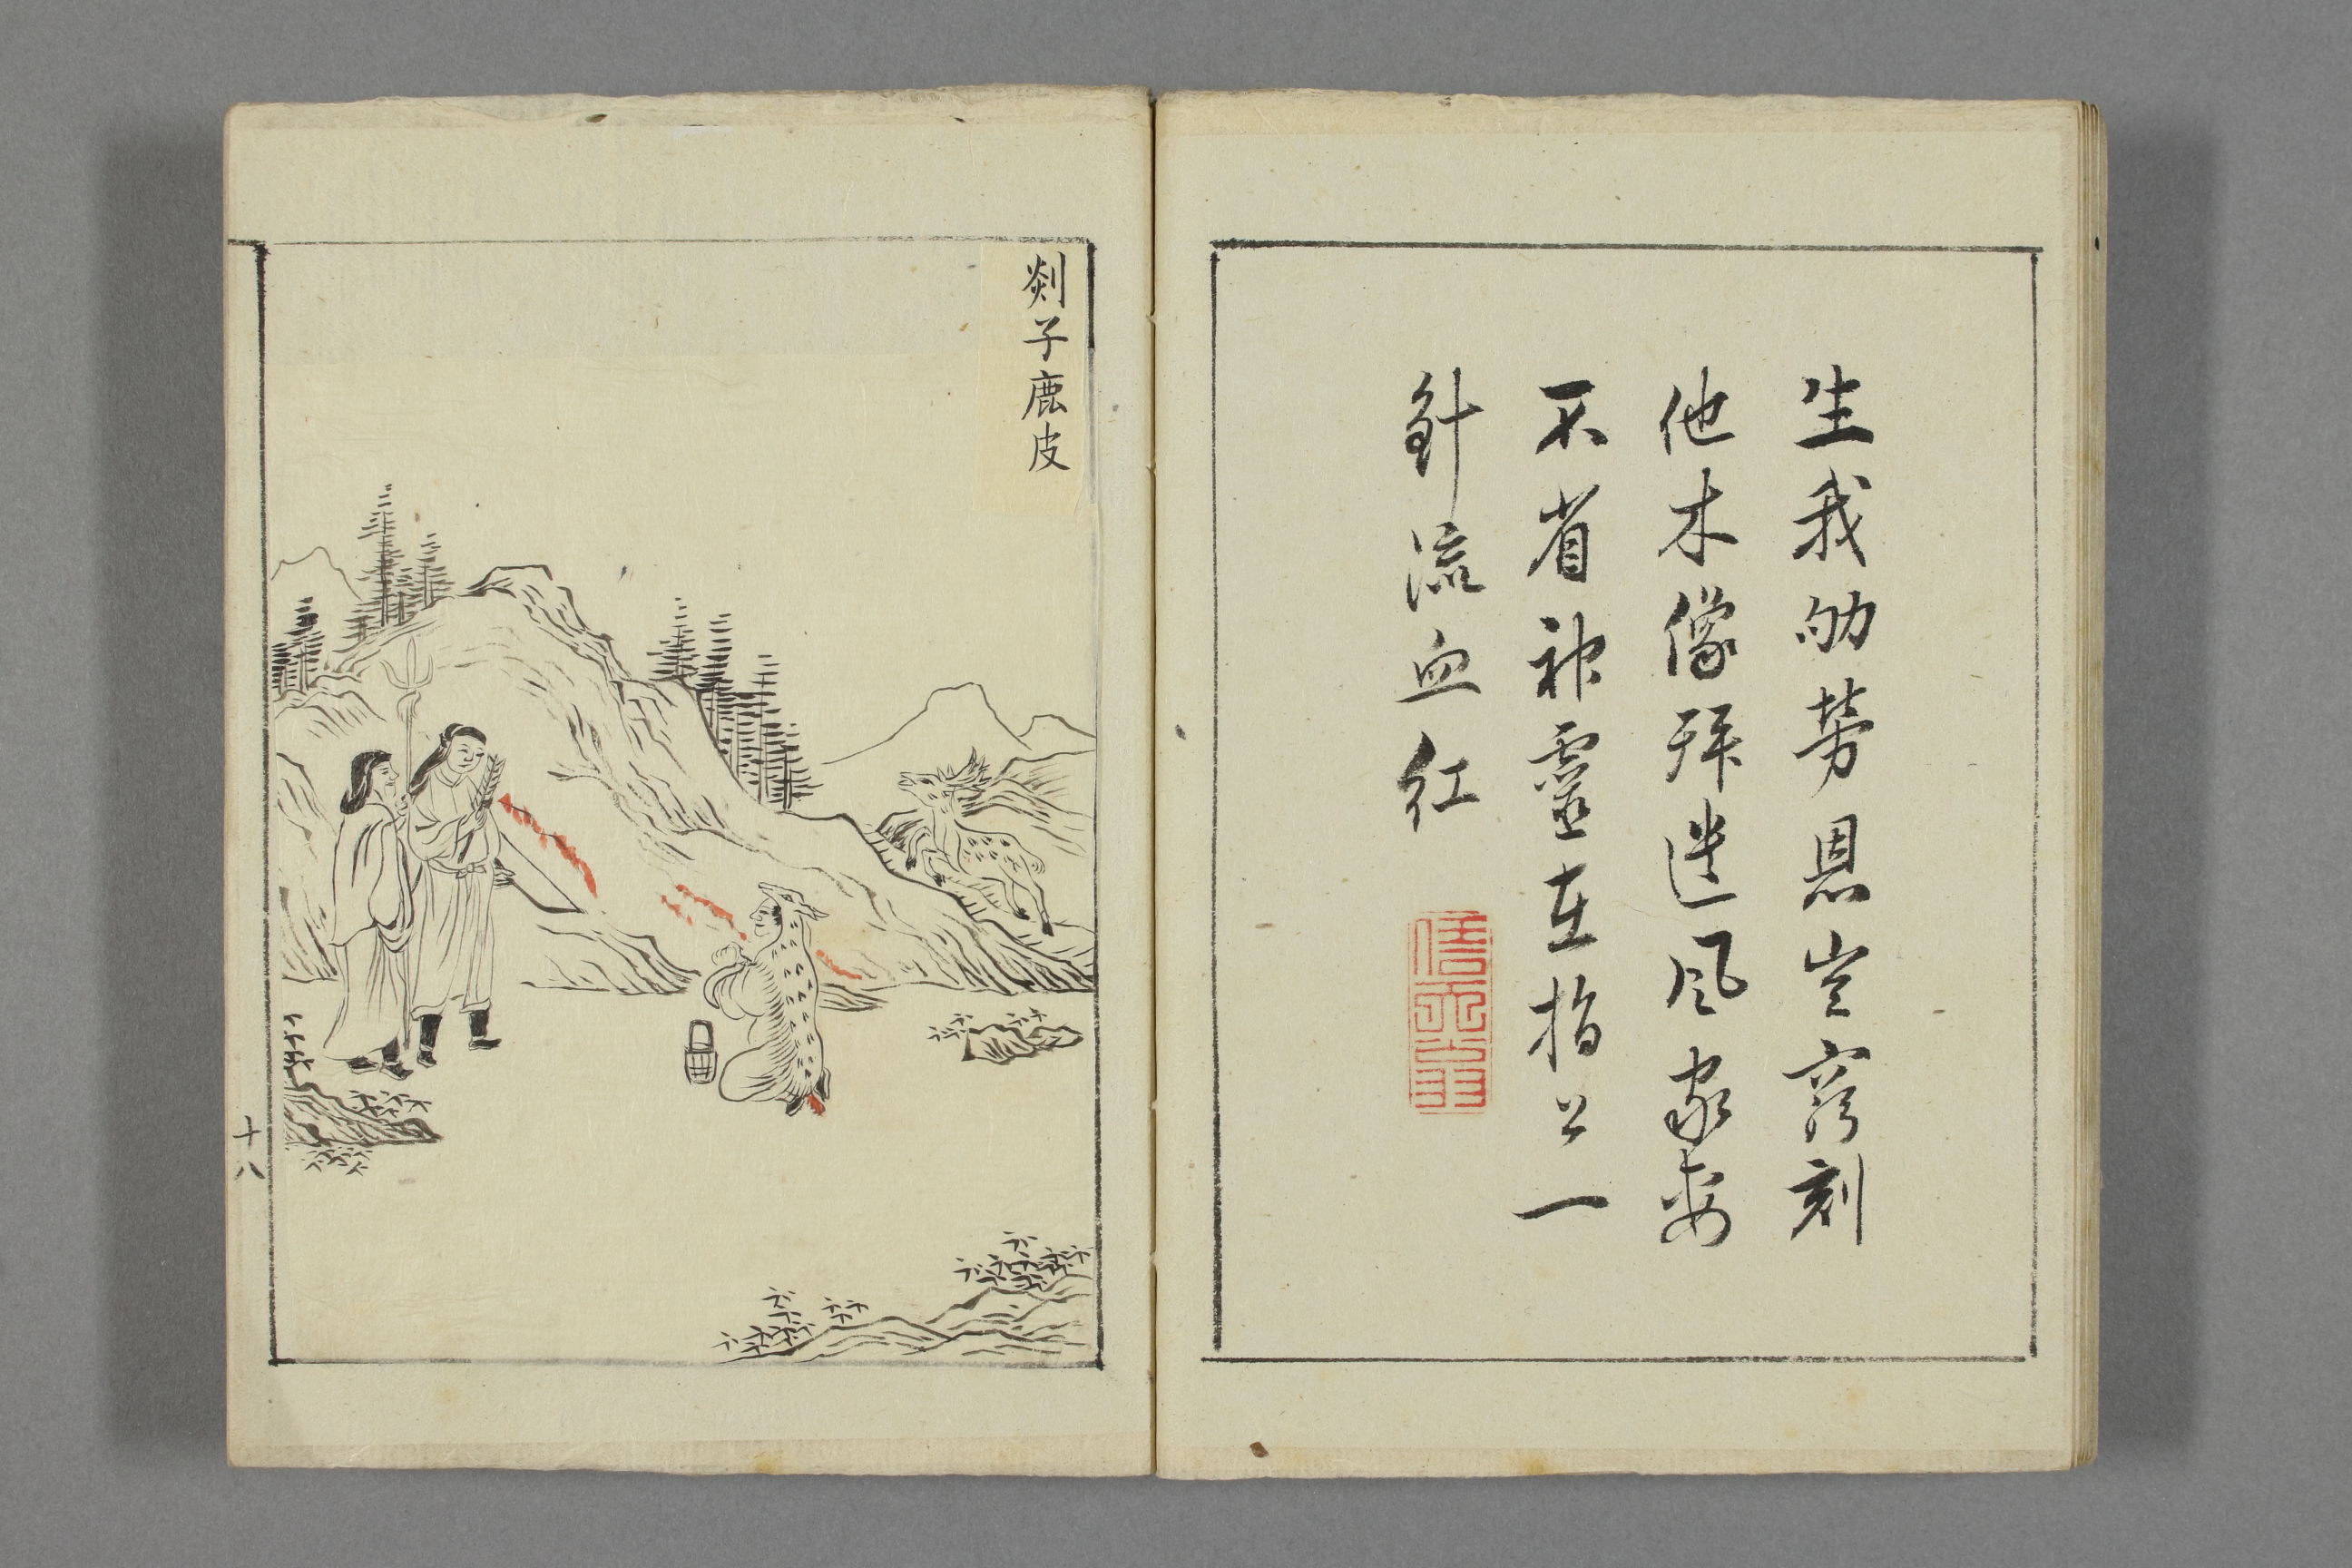 生我劬勞恩豈窮刻
他木像拜遺風家妻
不省神靈在指上一
針流血紅
剡子鹿皮
十八